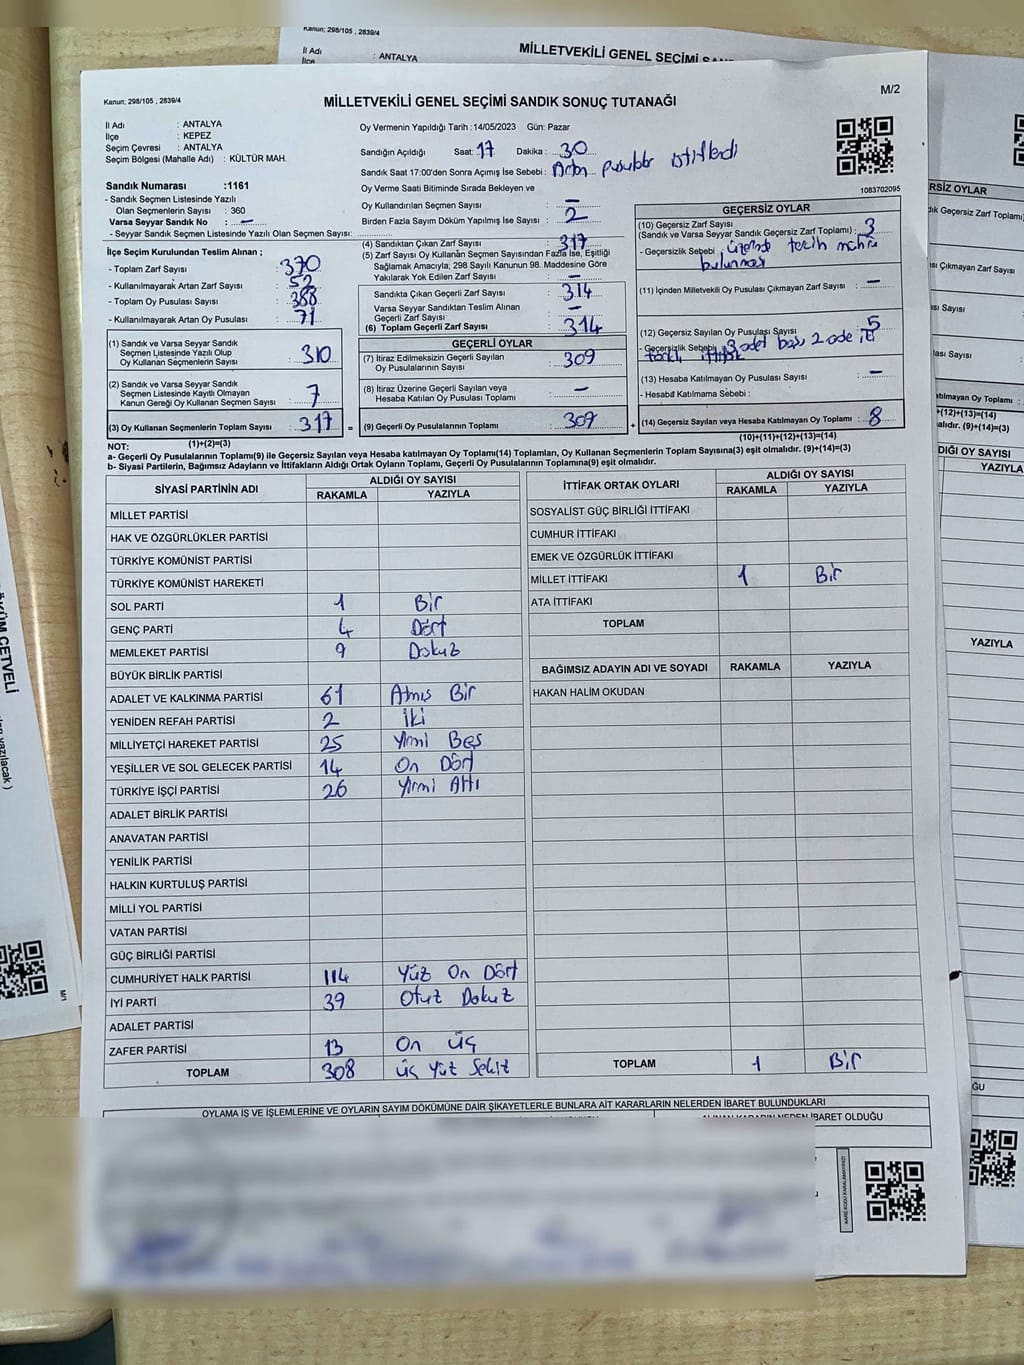 Kanun; 298/105 , 2839/4
İl Adı : ANTALYA
MİLLETVEKİLİ GENEL SEÇİMİ
Kanun; 298/105 , 2839/4
MİLLETVEKİLİ GENEL SEÇİMİ SANDIK SONUÇ TUTANAĞI
M/2
İl Adı : ANTALYA
İlçe : KEPEZ
Seçim Çevresi : ANTALYA
Seçim Bölgesi (Mahalle Adı) : KÜLTÜR MAH.
Oy Vermenin Yapıldığı Tarih : 14/05/2023 Gün: Pazar
Sandığın Açıldığı Saat: 17 Dakika : 30
Sandık Saat 17:00'den Sonra Açımış İse Sebebi : Artan pusulalar istiflendi
Oy Verme Saati Bitiminde Sırada Bekleyen ve
Oy Kullandırılan Seçmen Sayısı : —
Birden Fazla Sayım Döküm Yapılmış İse Sayısı : 2
1083702095
Sandık Numarası :1161
- Sandık Seçmen Listesinde Yazılı
Olan Seçmenlerin Sayısı : 360
Varsa Seyyar Sandık No : —
- Seyyar Sandık Seçmen Listesinde Yazılı Olan Seçmen Sayısı:
İlçe Seçim Kurulundan Teslim Alınan ;
- Toplam Zarf Sayısı : 370
- Kullanılmayarak Artan Zarf Sayısı : 53
- Toplam Oy Pusulası Sayısı : 388
- Kullanılmayarak Artan Oy Pusulası : 71
(1) Sandık ve Varsa Seyyar Sandık
Seçmen Listesinde Yazılı Olup
Oy Kullanan Seçmenlerin Sayısı : 310
(2) Sandık ve Varsa Seyyar Sandık
Seçmen Listesinde Kayıtlı Olmayan
Kanun Gereği Oy Kullanan Seçmen Sayısı : 7
(3) Oy Kullanan Seçmenlerin Toplam Sayısı : 317 =
(4) Sandıktan Çıkan Zarf Sayısı : 317
(5) Zarf Sayısı Oy Kullanan Seçmen Sayısından Fazla İse, Eşitliği
Sağlamak Amacıyla; 298 Sayılı Kanunun 98. Maddesine Göre
Yakılarak Yok Edilen Zarf Sayısı : —
Sandıkta Çıkan Geçerli Zarf Sayısı : 314
Varsa Seyyar Sandıktan Teslim Alınan
Geçerli Zarf Sayısı : —
(6) Toplam Geçerli Zarf Sayısı : 314
GEÇERLİ OYLAR
(7) İtiraz Edilmeksizin Geçerli Sayılan
Oy Pusulalarının Sayısı : 309
(8) İtiraz Üzerine Geçerli Sayılan veya
Hesaba Katılan Oy Pusulası Toplamı : —
(9) Geçerli Oy Pusulalarının Toplamı : 309 +
GEÇERSİZ OYLAR
(10) Geçersiz Zarf Sayısı
(Sandık ve Varsa Seyyar Sandık Geçersiz Zarf Toplamı) : 3
- Geçersizlik Sebebi : üzerinde tercih mührü
bulunması
(11) İçinden Milletvekili Oy Pusulası Çıkmayan Zarf Sayısı : —
(12) Geçersiz Sayılan Oy Pusulası Sayısı : 5
- Geçersizlik Sebebi : 3 adet boş, 2 adet iki
farklı ittifak
(13) Hesaba Katılmayan Oy Pusulası Sayısı : —
- Hesaba Katılmama Sebebi :
(14) Geçersiz Sayılan veya Hesaba Katılmayan Oy Toplamı : 8
NOT: (1)+(2)=(3)
(10)+(11)+(12)+(13)=(14)
a- Geçerli Oy Pusulalarının Toplamı(9) ile Geçersiz Sayılan veya Hesaba katılmayan Oy Toplamı(14) Toplamları, Oy Kullanan Seçmenlerin Toplam Sayısına(3) eşit olmalıdır. (9)+(14)=(3)
b- Siyasi Partilerin, Bağımsız Adayların ve İttifakların Aldığı Ortak Oyların Toplamı, Geçerli Oy Pusulalarının Toplamına(9) eşit olmalıdır.
SİYASİ PARTİNİN ADI ALDIĞI OY SAYISI
RAKAMLA YAZIYLA
MİLLET PARTİSİ
HAK VE ÖZGÜRLÜKLER PARTİSİ
TÜRKİYE KOMÜNİST PARTİSİ
TÜRKİYE KOMÜNİST HAREKETİ
SOL PARTİ 1 Bir
GENÇ PARTİ 4 Dört
MEMLEKET PARTİSİ 9 Dokuz
BÜYÜK BİRLİK PARTİSİ
ADALET VE KALKINMA PARTİSİ 61 Atmış Bir
YENİDEN REFAH PARTİSİ 2 İki
MİLLİYETÇİ HAREKET PARTİSİ 25 Yirmi Beş
YEŞİLLER VE SOL GELECEK PARTİSİ 14 On Dört
TÜRKİYE İŞÇİ PARTİSİ 26 Yirmi Altı
ADALET BİRLİK PARTİSİ
ANAVATAN PARTİSİ
YENİLİK PARTİSİ
HALKIN KURTULUŞ PARTİSİ
MİLLİ YOL PARTİSİ
VATAN PARTİSİ
GÜÇ BİRLİĞİ PARTİSİ
CUMHURİYET HALK PARTİSİ 114 Yüz On Dört
İYİ PARTİ 39 Otuz Dokuz
ADALET PARTİSİ
ZAFER PARTİSİ 13 On Üç
TOPLAM 308 Üç Yüz Sekiz
İTTİFAK ORTAK OYLARI ALDIĞI OY SAYISI
RAKAMLA YAZIYLA
SOSYALİST GÜÇ BİRLİĞİ İTTİFAKI
CUMHUR İTTİFAKI
EMEK VE ÖZGÜRLÜK İTTİFAKI
MİLLET İTTİFAKI 1 Bir
ATA İTTİFAKI
TOPLAM
BAĞIMSIZ ADAYIN ADI VE SOYADI RAKAMLA YAZIYLA
HAKAN HALİM OKUDAN
TOPLAM 1 Bir
OYLAMA İŞ VE İŞLEMLERİNE VE OYLARIN SAYIM DÖKÜMÜNE DAİR ŞİKAYETLERLE BUNLARA AİT KARARLARIN NELERDEN İBARET BULUNDUKLARI
ALINAN KARARIN NEDEN İBARET OLDUĞU